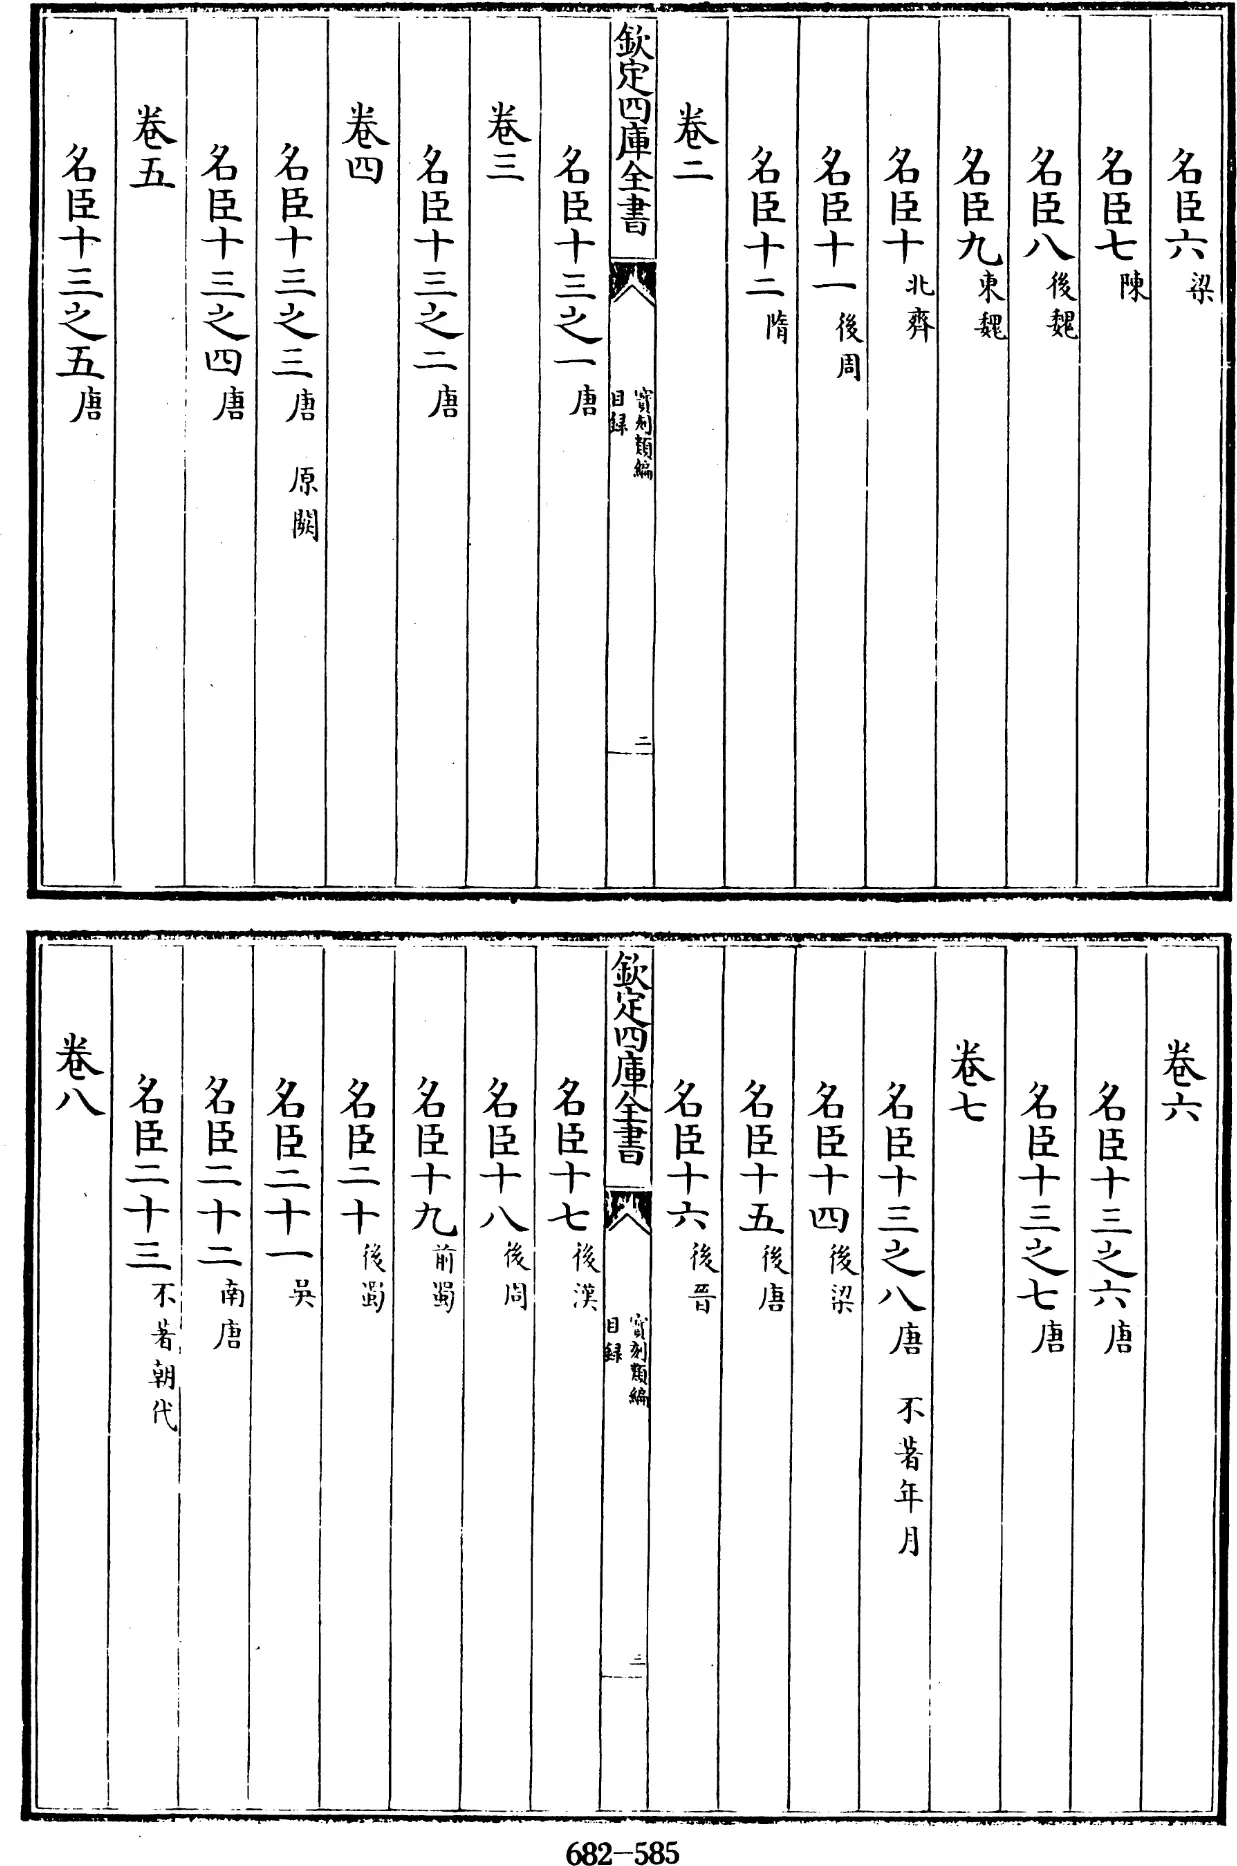 名臣六梁
名臣七陳
名臣八後魏
名臣九東魏
名臣十北齊
名臣十一後周
名臣十二隋
卷二
欽定四庫全書
寶刻類編
目録
二
名臣十三之一唐
卷三
名臣十三之二唐
卷四
名臣十三之三唐 原闕
名臣十三之四唐
卷五
名臣十三之五唐
卷六
名臣十三之六唐
名臣十三之七唐
卷七
名臣十三之八唐 不著年月
名臣十四後梁
名臣十五後唐
名臣十六後晉
欽定四庫全書
寶刻類編
目録
三
名臣十七後漢
名臣十八後周
名臣十九前蜀
名臣二十後蜀
名臣二十一吳
名臣二十二南唐
名臣二十三不著朝代
卷八
682-585